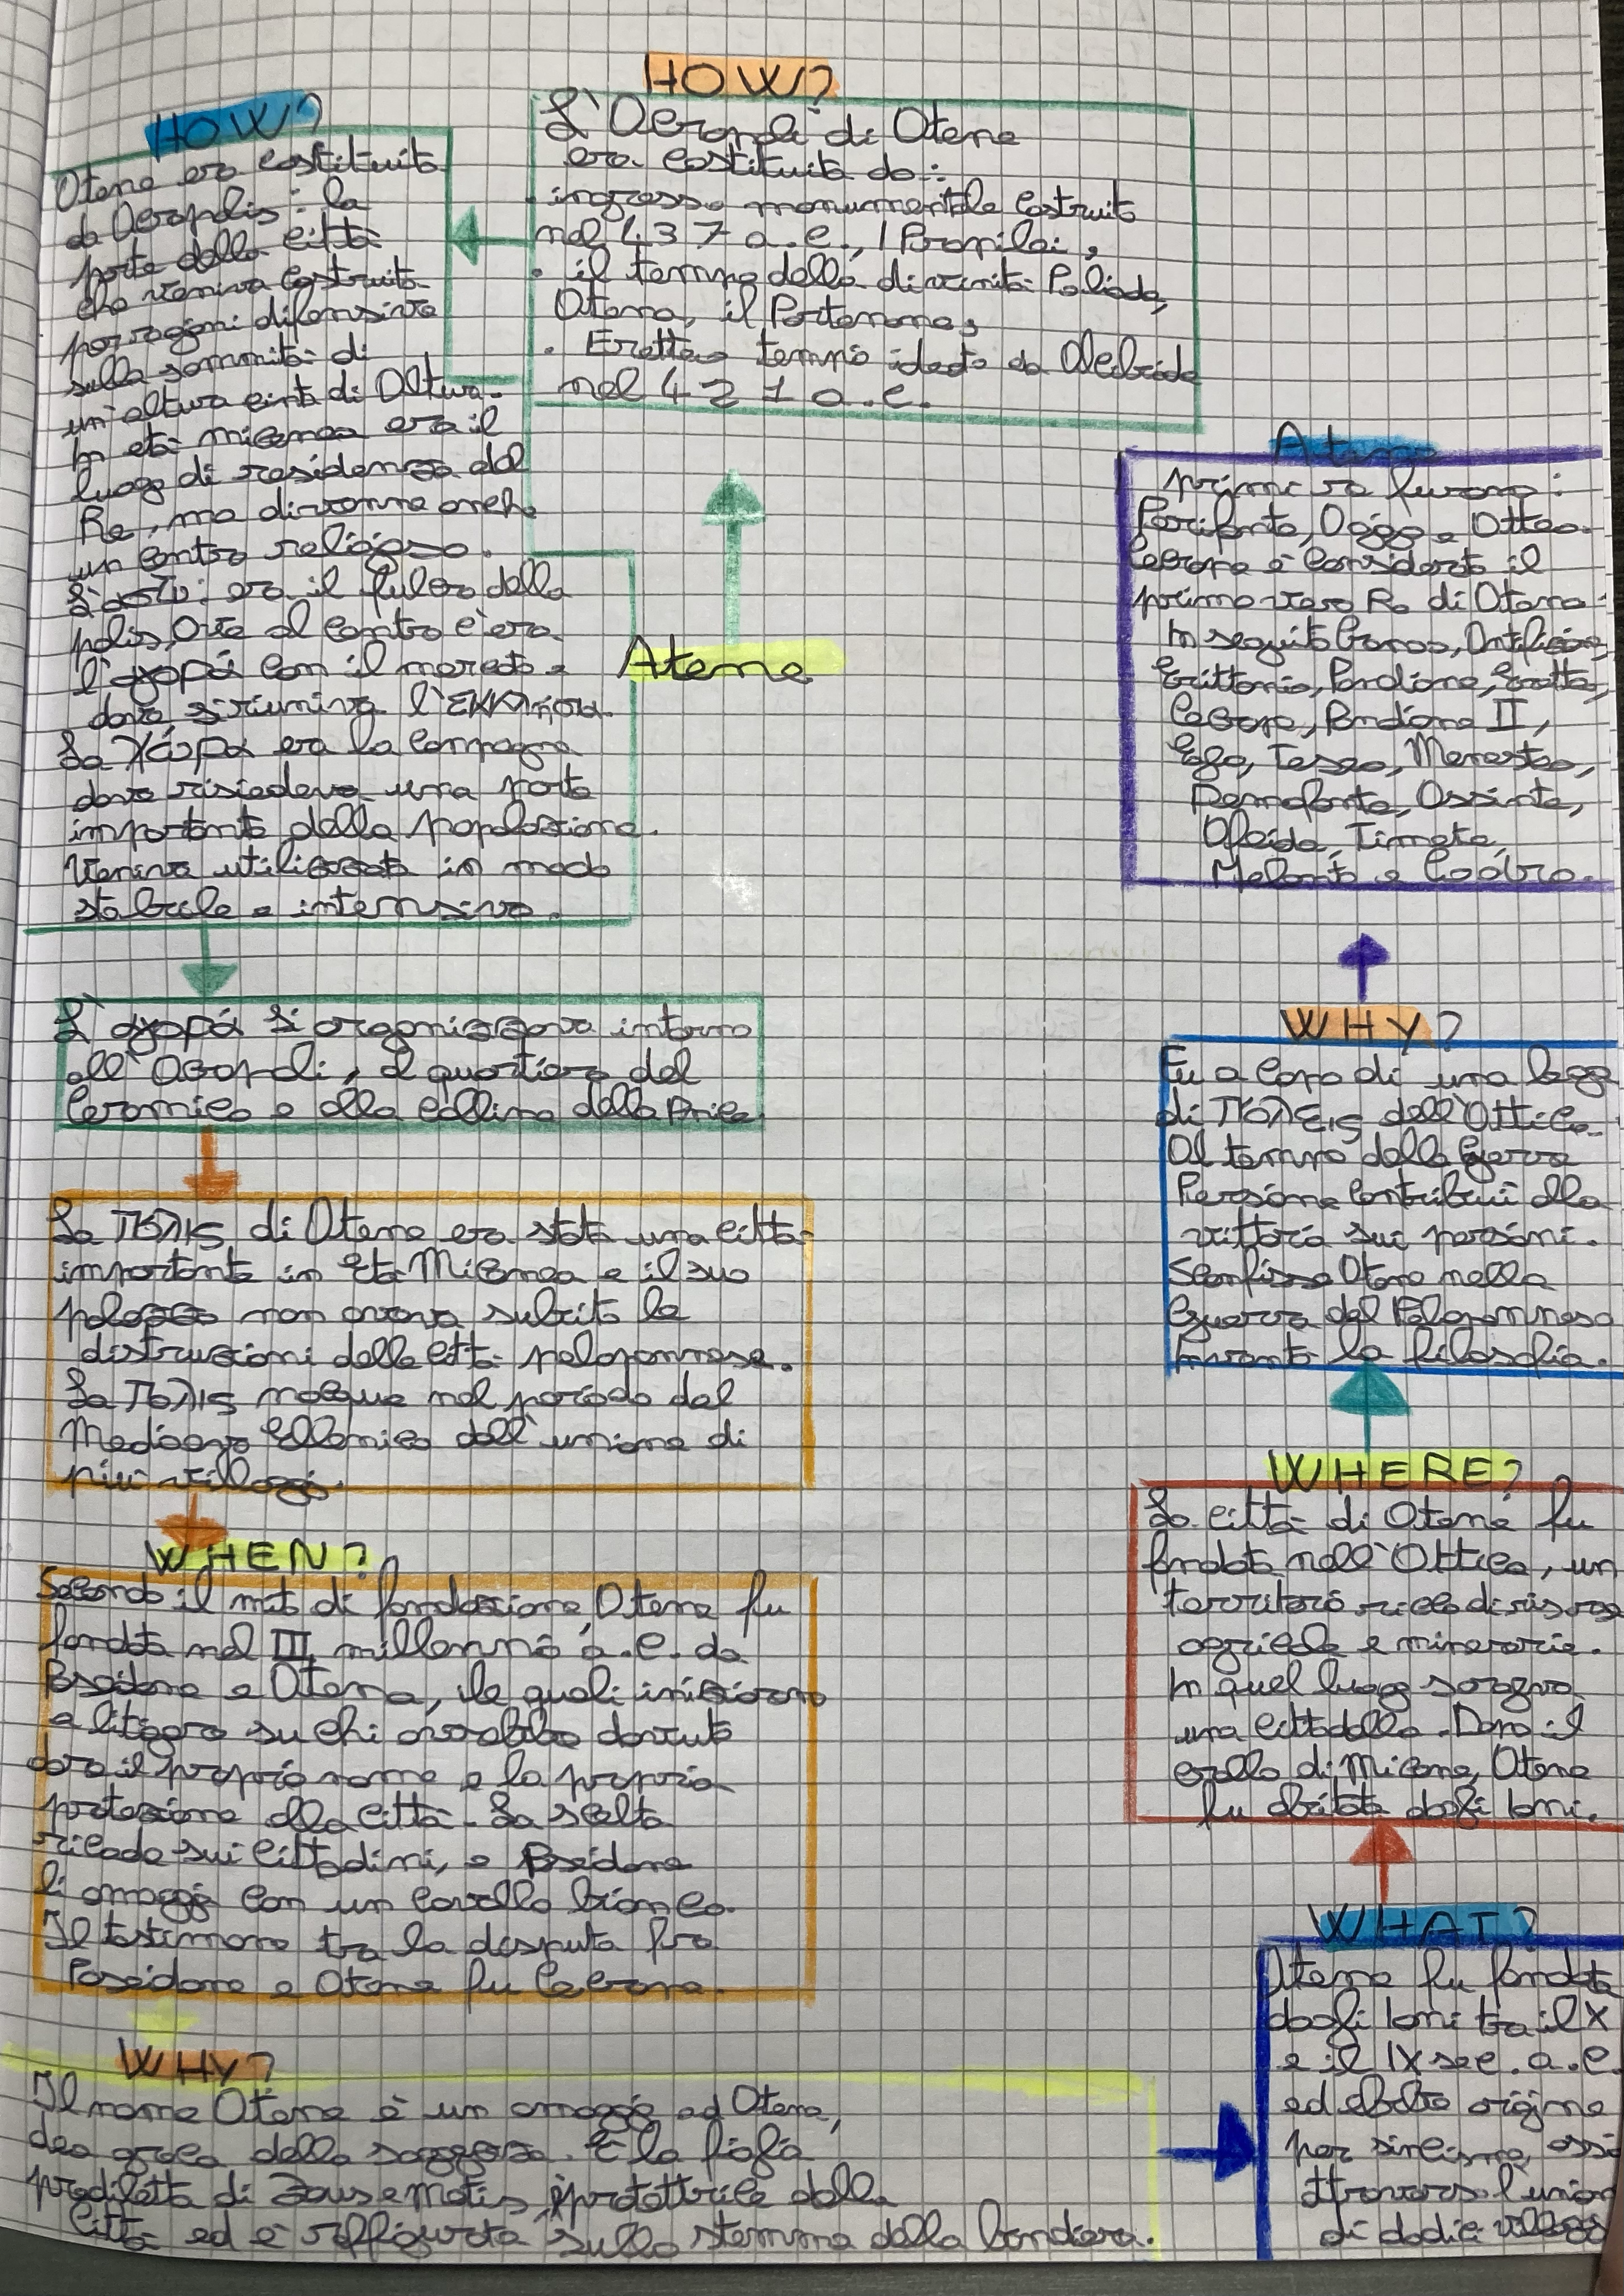 HOW?
L'Acropoli di Atene
era costituita da:
· ingresso monumentale costruito
nel 437 a.C., I Propilei;
· il tempo della divinità Poliade,
Atena, il Partenone;
· Eretteo tempio ideato da Alcibiade
nel 421 a.C.
HOW?
Atene era costituita
da Acropolis: la
parte della città
che veniva costruita
per ragioni difensive
sulla sommità di
un'altura cinta di Altura.
In età micenea era il
luogo di residenza del
Re, ma divenne anche
un centro religioso.
L'ἀστυ: era il fulcro della
polis, ove al centro c'era
l'ἀγορά con il mercato e
dove si riuniva l'ἐκκλησία.
La χώρα era la campagna
dove risiedeva una parte
importante della popolazione.
Veniva utilizzata in modo
stabile e intensivo.
Atene
L'ἀγορά si organizzava intorno
all'Acropoli, al quartiere del
Ceramico e alla collina della Pnice.
La πόλις di Atene era stata una città
importante in Età Micenea e il suo
palazzo non aveva subito le
distruzioni delle città peloponnese.
La πόλις nacque nel periodo del
Medioevo Ellenico dall'unione di
più villaggi.
WHEN?
Secondo il mito di fondazione, Atene fu
fondata nel III millennio a.C. da
Poseidone e Atena, le quali iniziarono
a litigare su chi avrebbe dovuto
dare il proprio nome e la propria
protezione alla città. La scelta
ricade sui cittadini, e Poseidone
li omaggi con un cavallo bianco.
Il testimone tra la disputa fra
Poseidone e Atena fu Cecrope.
WHY?
Il nome Atene è un omaggio ad Atena,
dea greca della saggezza. È la figlia
prediletta di Zeus e Metis, è protettrice della
città ed è raffigurata sullo stemma della bandiera.
WHAT?
Atene fu fondata
dagli Ioni tra il X
e il IX sec. a.C.
ed ebbe origine
per sincismo, ossi
attraverso l'union
di dodici villaggi
WHERE?
La città di Atene fu
fondata nell'Attica, un
territorio ricco di risorse
agricole e minerarie.
In quel luogo sorgeva
una cittadella. Dopo il
crollo di Micene, Atene
fu abitata dagli Ioni.
WHY?
Fu a capo di una lega
di πόλεις dell'Attica.
Al tempo della Guerra
Persiane contribuì alla
vittoria sui persiani.
Sconfisse Atene nella
Guerra del Peloponneso
Inventò la filosofia.
Atene
primi re furono:
Perifante, Ogigo e Atteo.
Cecrope è considerato il
primo vero Re di Atene.
In seguito Cranao, Anfizione,
Erittonio, Pandione, Eretteo,
Cecrope, Pandione II,
Egeo, Teseo, Menesteo,
Demofonte, Ossinte,
Afeida, Timete,
Melanto e Codro.